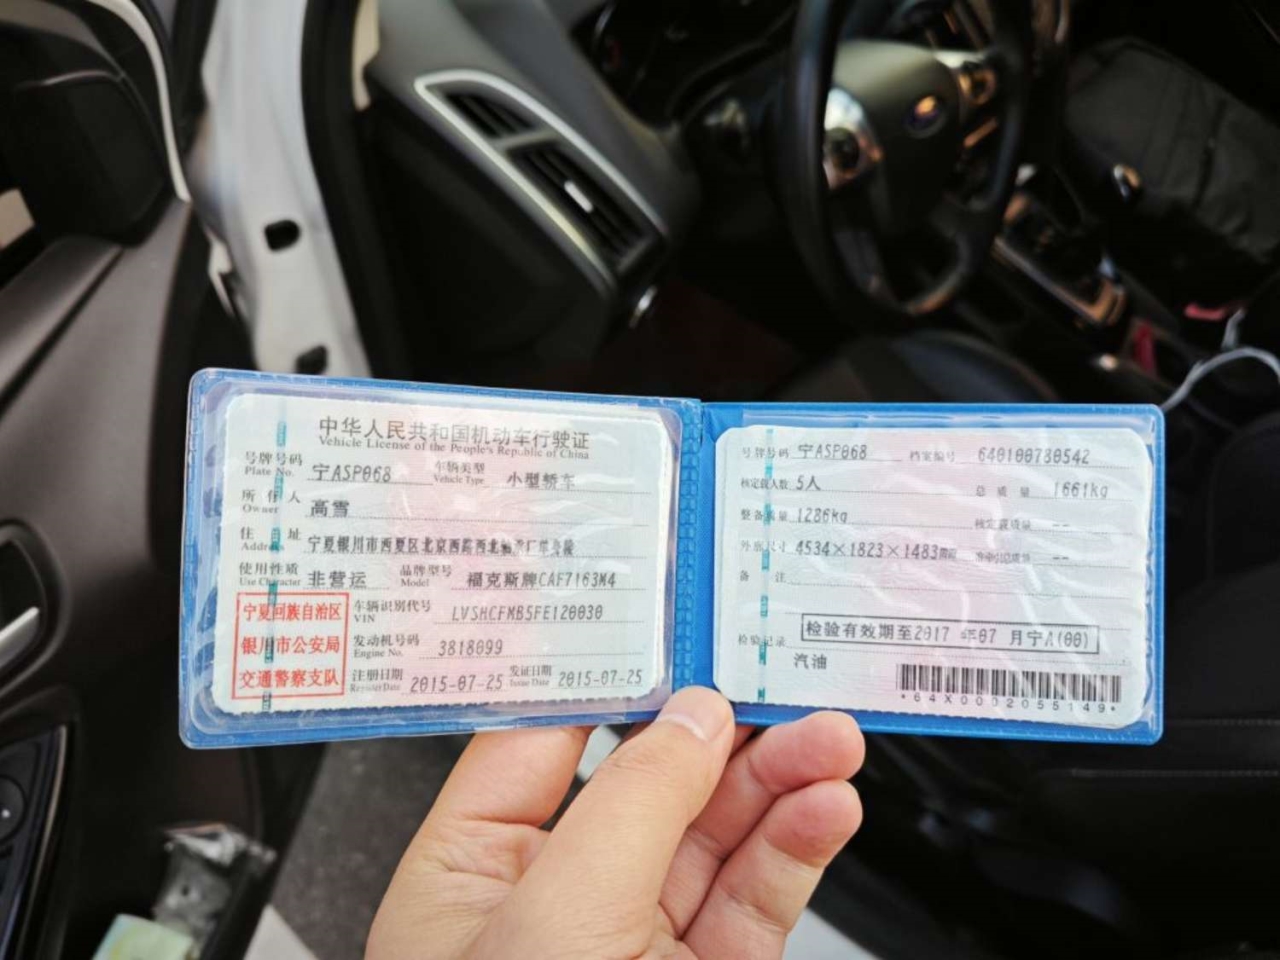 中华人民共和国机动车行驶证
Vehicle License of the People's Republic of China
号牌号码 Plate No. 宁A5P068 车辆类型 Vehicle Type 小型轿车
所有人 Owner 高雪
住址 Address 宁夏银川市西夏区北京西路西北轴承厂单身楼
使用性质 Use Character 非营运 品牌型号 Model 福克斯牌CAF7163M4
宁夏回族自治区
银川市公安局
交通警察支队
车辆识别代号 VIN LVSHCFMB5FE120030
发动机号码 Engine No. 3818099
注册日期 Register Date 2015-07-25 发证日期 Issue Date 2015-07-25
号牌号码 宁A5P068 档案编号 640100780542
核定载人数 5人 总质量 1661kg
整备质量 1286kg 核定载质量 --
外廓尺寸 4534×1823×1483mm 准牵引总质量 --
备注
检验记录 检验有效期至2017年07月宁A(00)
汽油
*64X0002055149*